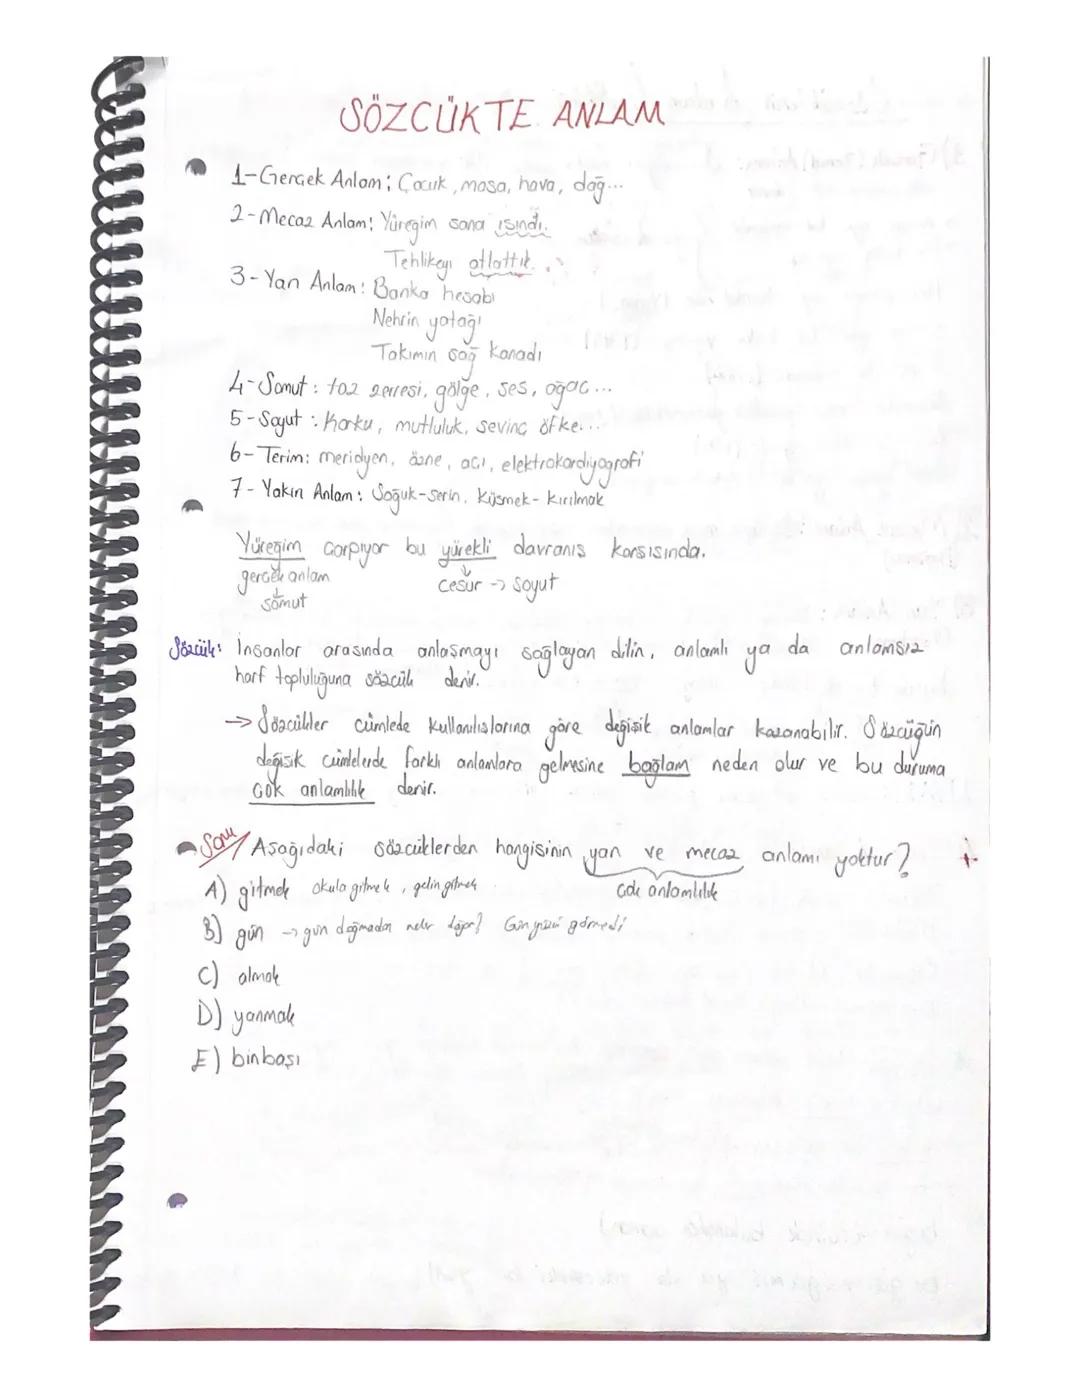 SÖZCÜKTE ANLAM
1-Gerçek Anlam: Çocuk, masa, hava, dağ...
2-Mecaz Anlam: Yüreğim sana ısındı.
Tehlikeyi atlattık.
3-Yan Anlam: Banka hesabı
Nehrin yatağı
Takımın sağ kanadı
4-Somut: toz zerresi, gölge, ses, ağaç...
5-Soyut: Korku, mutluluk, sevinç öfke...
6-Terim: meridyen, özne, açı, elektrokardiyografi
7-Yakın Anlam: Soğuk-serin, Küsmek-kırılmak
Yüreğim çarpıyor bu yürekli davranış karşısında.
gerçek anlam cesur → soyut
somut
Sözcük: İnsanlar arasında anlaşmayı sağlayan dilin, anlamlı ya da anlamsız
harf topluluğuna sözcük denir.
→ Sözcükler cümlede kullanılışlarına göre değişik anlamlar kazanabilir. Sözcüğün
değişik cümlelerde farklı anlamlara gelmesine bağlam neden olur ve bu duruma
çok anlamlılık denir.
Soru/ Aşağıdaki sözcüklerden hangisinin yan ve mecaz anlamı yoktur?
çok anlamlılık
A) gitmek okula gitmek, gelin gitmek
B) gün → gün doğmadan neler doğar? Gün yüzü görmedi
C) almak
D) yanmak
E) binbaşı